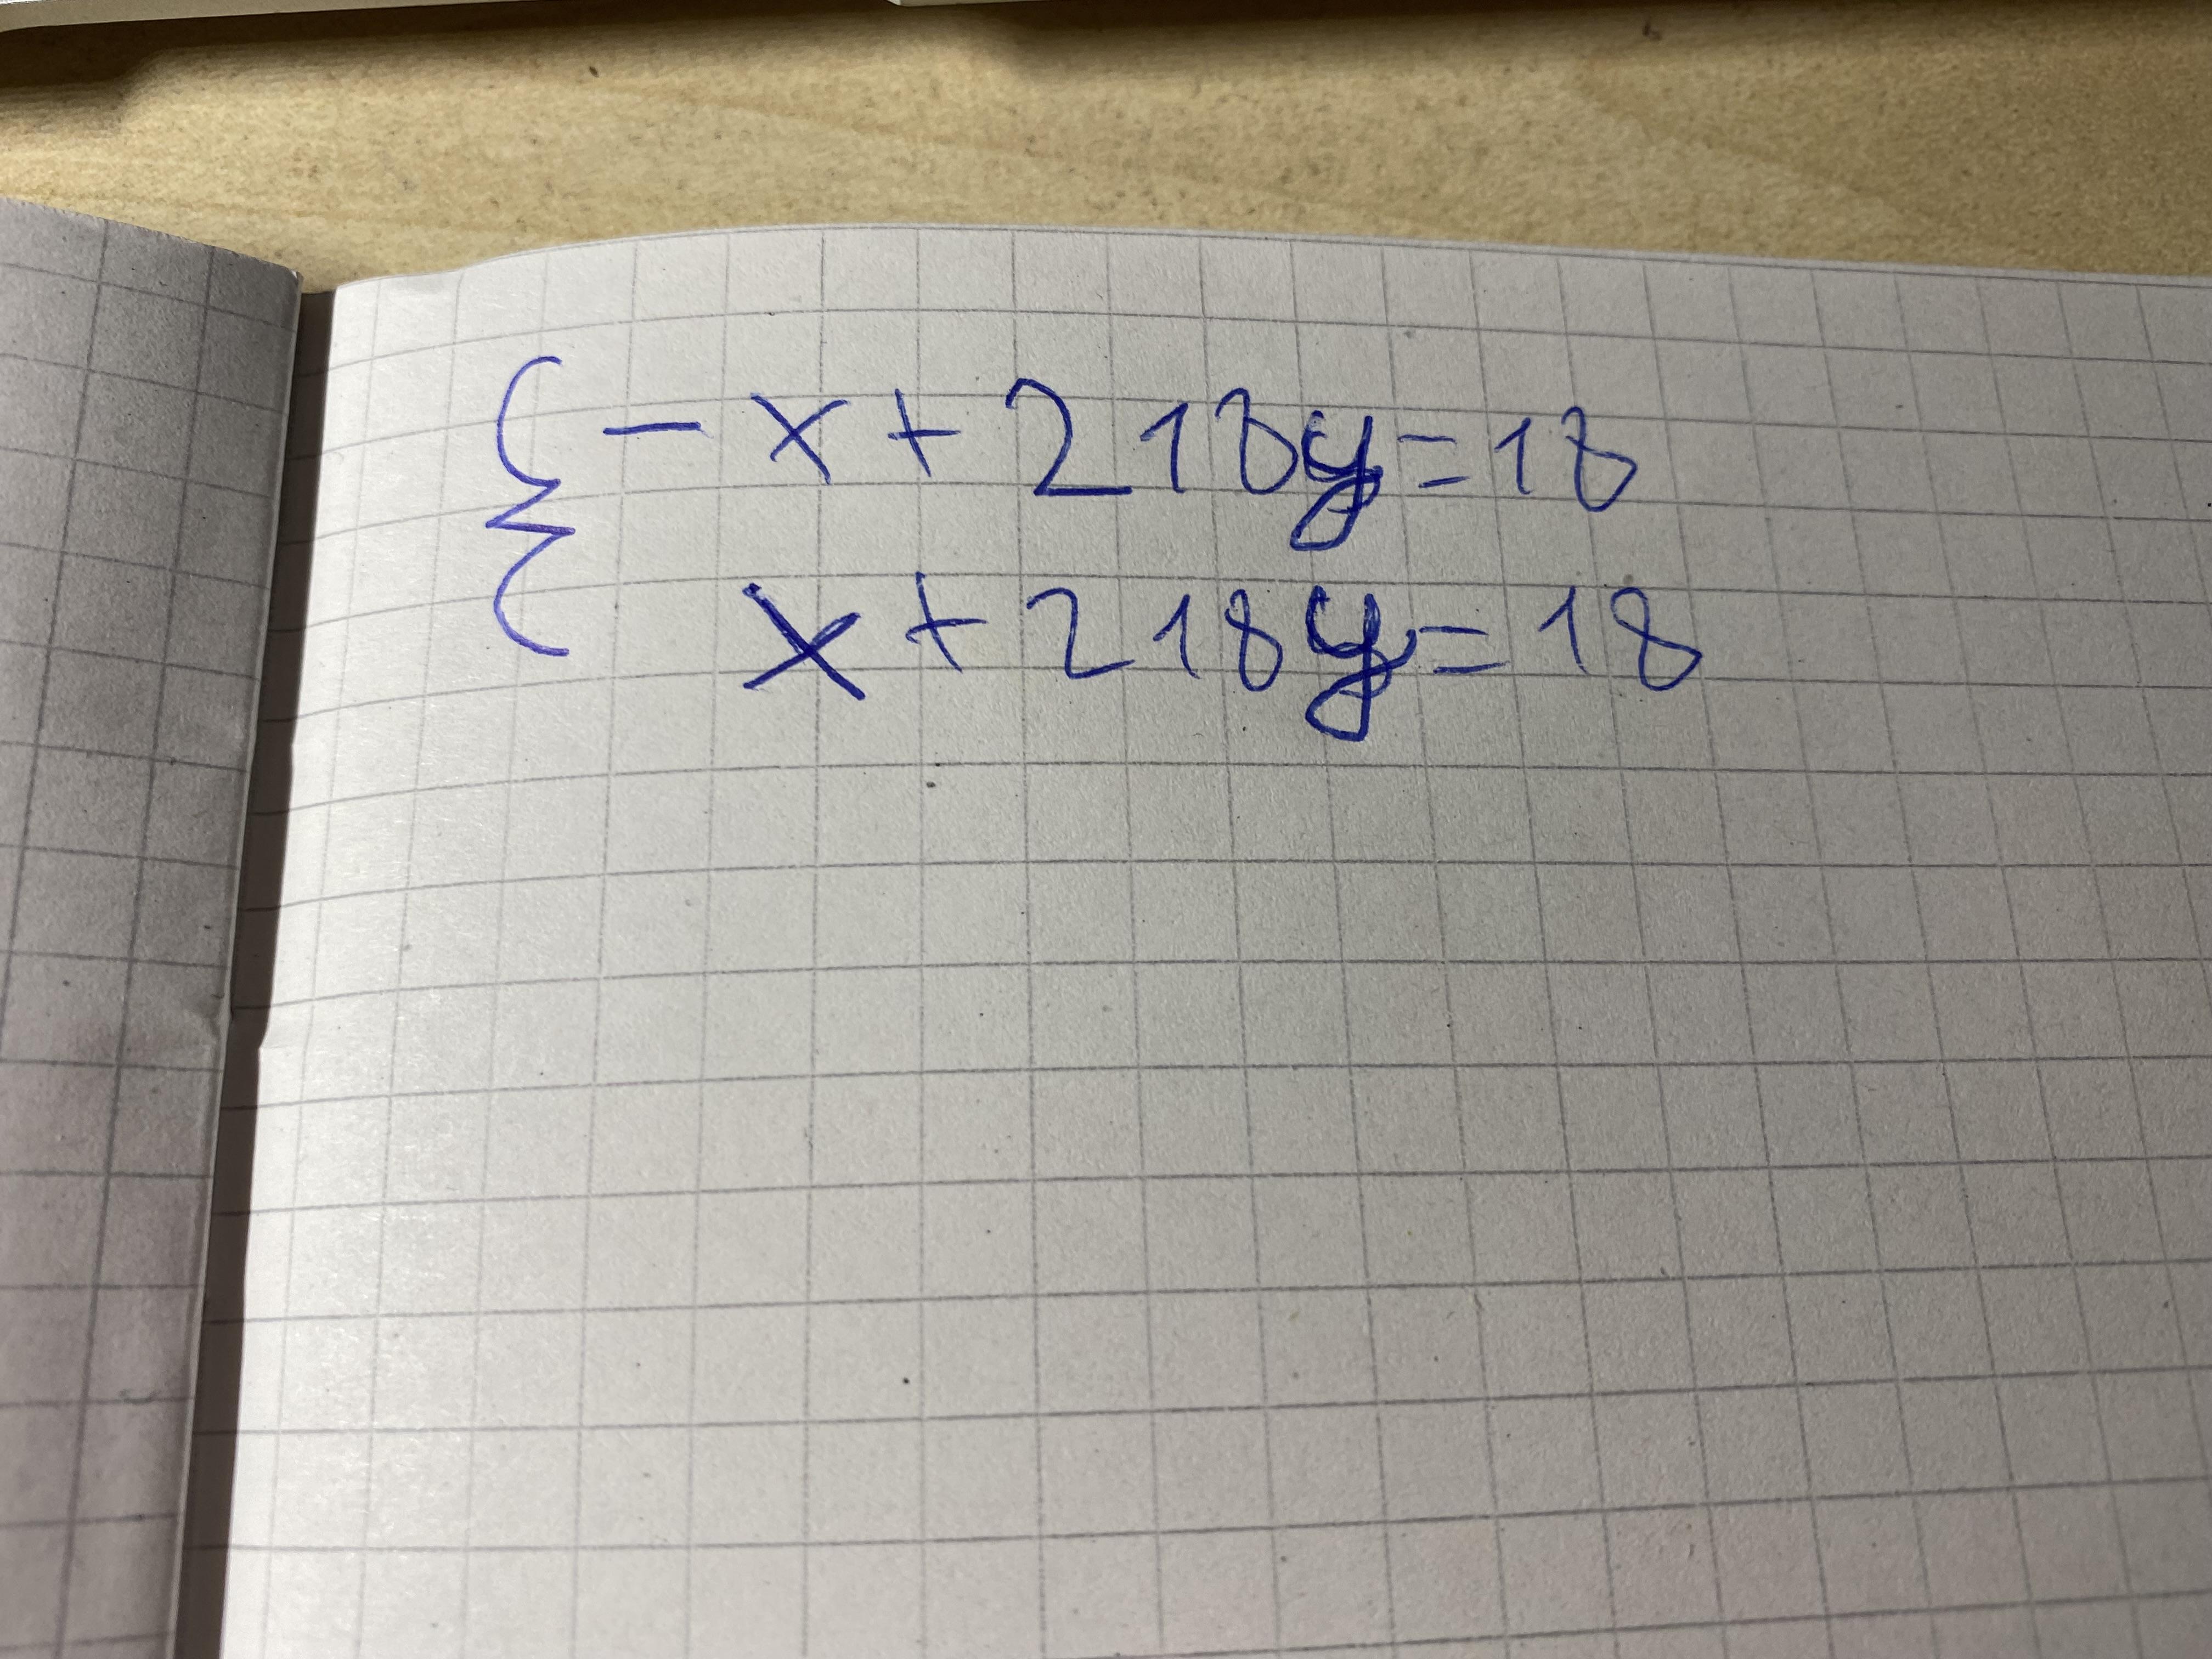 { -x + 218y = 18
x + 218y = 18